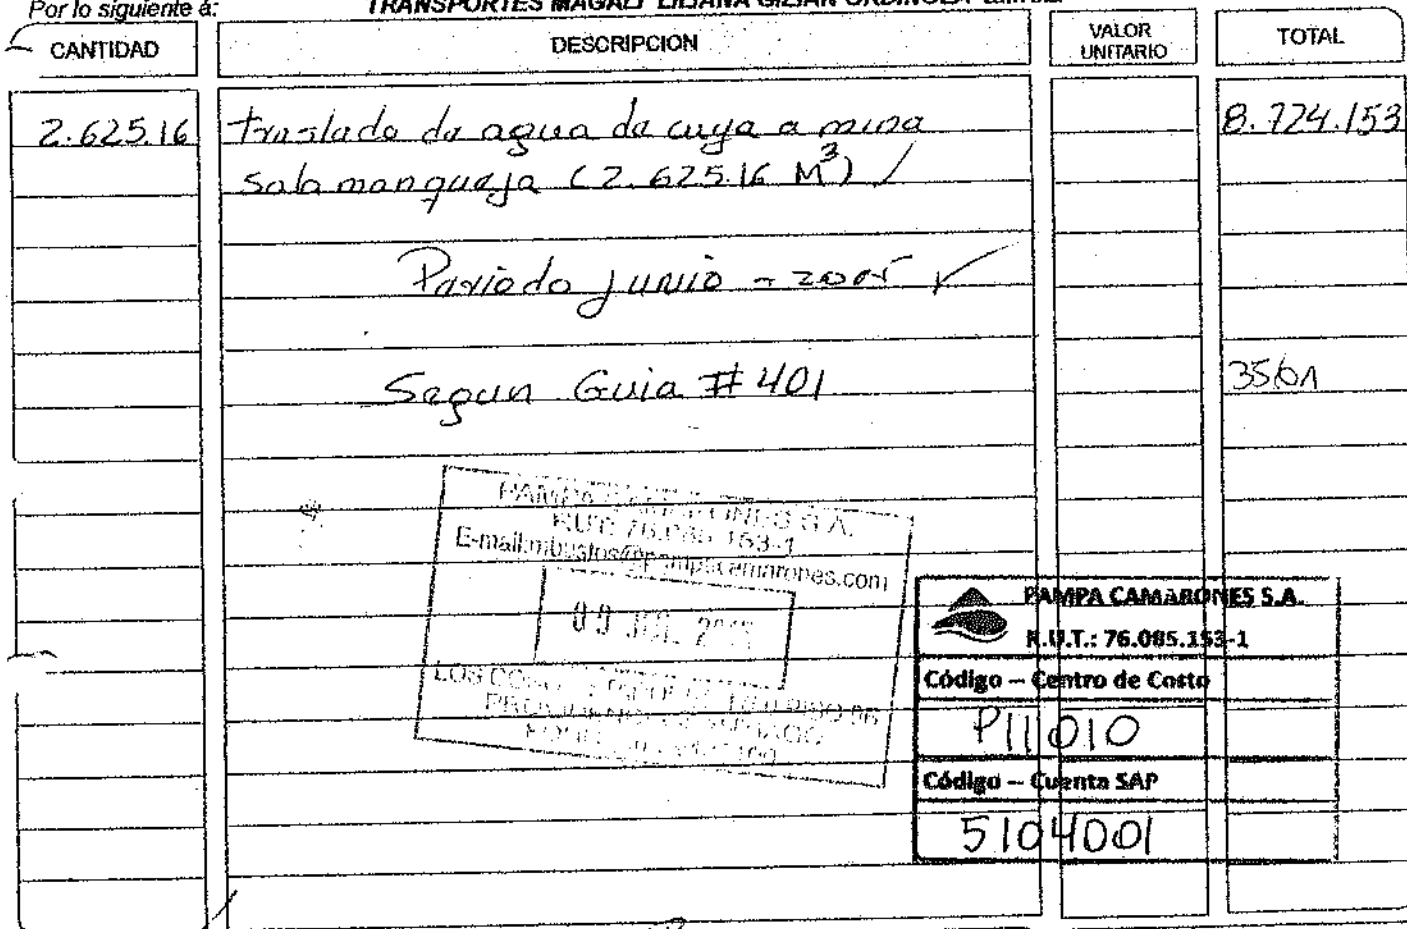 Por lo siguiente á:
TRANSPORTES MAGALY LILIANA
CANTIDAD DESCRIPCION VALOR UNITARIO TOTAL
2.625.16 traslado de agua de cuya a mina 8.724.153
salamanqueja (2.625.16 M3)
Periodo junio - 2005
Segun Guia # 401
S.A.
R.U.T: 76.085.153-1
E-mail:mbustos@pampacamarones.com
09 JUL.
PAMPA CAMARONES S.A.
R.U.T.: 76.085.153-1
Código – Centro de Costo
P11010
Código – Cuenta SAP
5104001